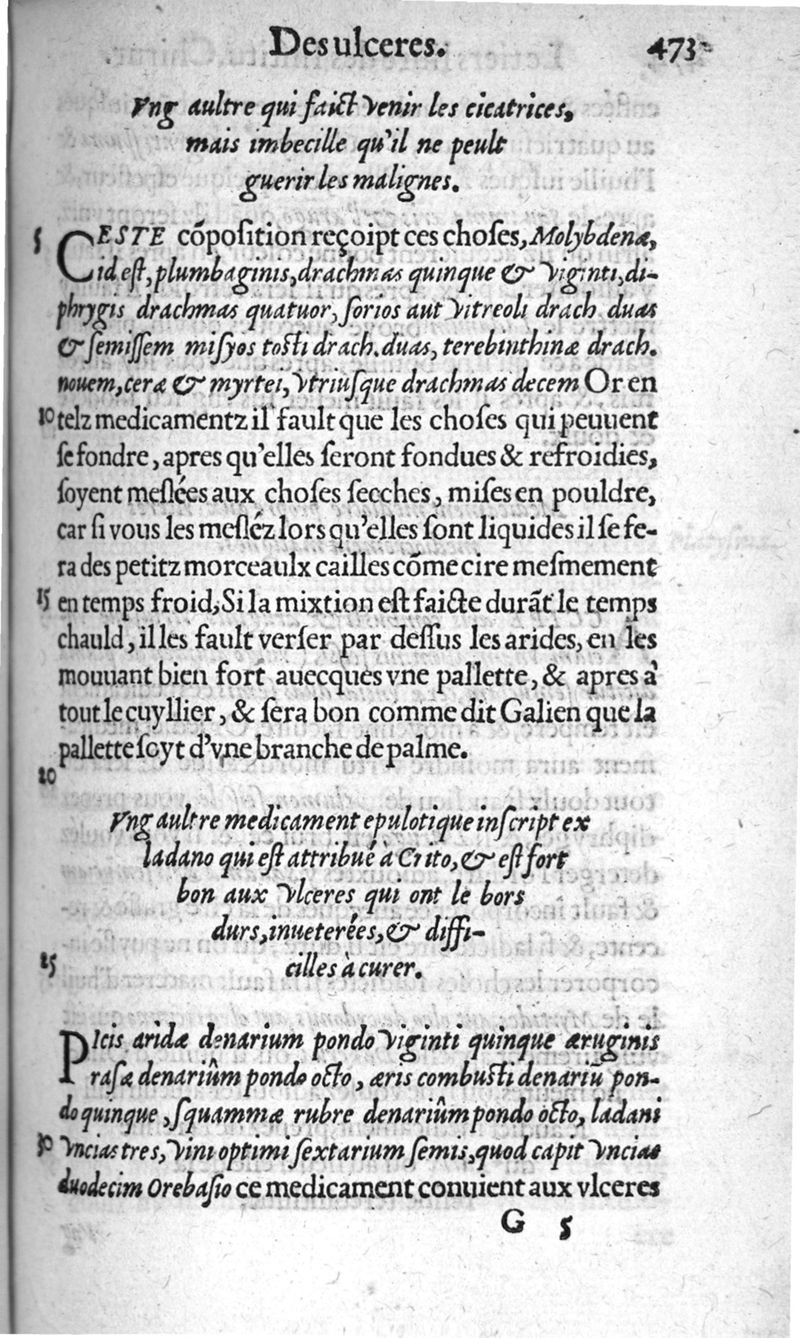 Des ulceres. 473
Vng aultre qui faict venir les cicatrices,
mais imbecille qu'il ne peult
guerir les malignes.
5 CESTE cõposition reçoipt ces choſes, Molybdenæ,
id eſt, plumbaginis, drachmas quinque & viginti, di-
phrygis drachmas quatuor, ſorios aut vitreoli drach duas
& ſemiſſem miſyos toſti drach. duas, terebinthinæ drach.
nouem, ceræ & myrtei, vtriuſque drachmas decem Or en
10 telz medicamentz il fault que les choſes qui peuuent
ſe fondre, apres qu'elles ſeront fondues & refroidies,
ſoyent meſlées aux choſes ſecches, miſes en pouldre,
car ſi vous les meſléz lors qu'elles ſont liquides il ſe fe-
ra des petitz morceaulx cailles cõme cire meſmement
15 en temps froid, Si la mixtion eſt faicte durãt le temps
chauld, il les fault verſer par deſſus les arides, en les
mouuant bien fort auecques vne pallette, & apres à
tout le cuyllier, & ſera bon comme dit Galien que la
pallette ſoyt d'vne branche de palme.
20
Vng aultre medicament epulotique inſcript ex
ladano qui eſt attribué à Crito, & eſt fort
bon aux vlceres qui ont le bors
durs, inueterées, & diffi-
25 cilles à curer.
PIcis aridæ denarium pondo viginti quinque æruginis
raſæ denariûm pondo octo, æris combuſti denariũ pon-
do quinque, ſquammæ rubre denariûm pondo octo, ladani
30 vncias tres, vini optimi ſextarium ſemis, quod capit vncias
duodecim Orebaſio ce medicament conuient aux vlceres
G 5